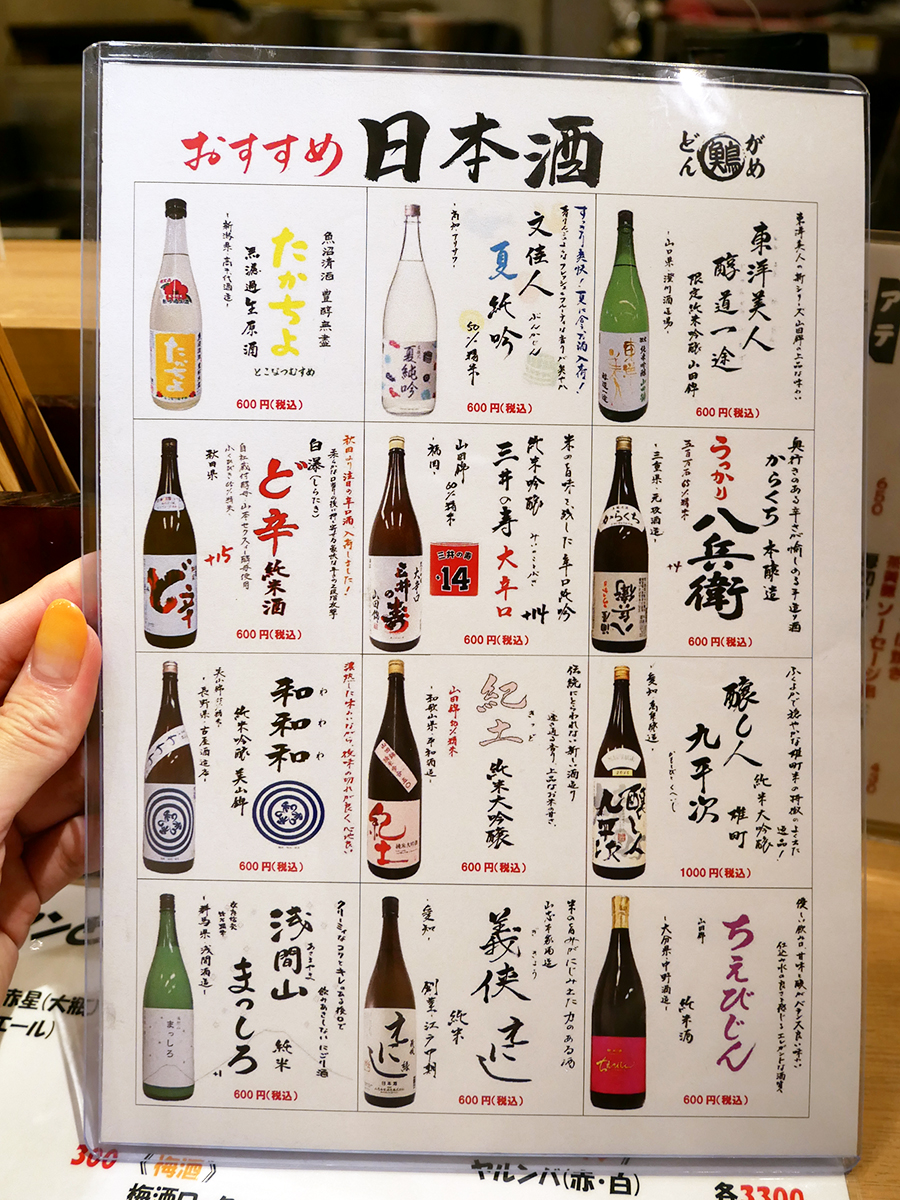 おすすめ
日本酒
どん
がめ
東洋美人の新シリーズ 山田錦の上品な味わい
東洋美人
醇道一途
限定純米吟醸 山田錦
-山口県 澄川酒造場-
600円(税込)
文佳人
ぶんかじん
夏純吟
50%精米
-高知 アリサワ-
夏純吟
600円(税込)
魚沼清酒 豊醇無盡
たかちよ
とこなつむすめ
無濾過生原酒
-新潟県 高千代酒造-
たかちよ
600円(税込)
奥行きのある辛さが愉しめる辛道酒
からくち 本醸造
うっかり
八兵衛
五百万石65%精米
-三重県 元坂酒造-
+4
からくち
八兵衛
600円(税込)
米の旨味を残した辛口純吟
純米吟醸
三井の寿 大辛口
みいのことぶき
+14
山田錦60%精米
-福岡-
三井の寿
+14
大辛口
三井の寿
山田錦
600円(税込)
秋田より注目の辛口酒入荷しました!
白瀑(しらたき)
ど辛 純米酒
自社蔵付酵母 山本セクスィー酵母使用
65%精米
秋田県
+15
ど辛
600円(税込)
醸し人
九平次
かもしびと くへいじ
純米大吟醸
雄町
逸品!
-愛知 萬乗醸造-
醸し人
九平次
1000円(税込)
伝統にとらわれない新しい酒造り
紀土
きっど
純米大吟醸
山田錦50%精米
-和歌山県 平和酒造-
紀土
純米大吟醸
600円(税込)
和和和
わわわ
純米吟醸 美山錦
-長野県 古屋酒造店-
600円(税込)
ちえびじん
山田錦
純米酒
-大分県 中野酒造-
600円(税込)
米の旨みがにじみ出た 力のある酒
山忠本家酒造
義侠 えにし
ぎきょう
純米
創業:江戸中期
-愛知-
えにし
600円(税込)
クリーミィなコクとキレのある後口で
飲みあきしないにごり酒
浅間山
あさまやま
まっしろ
純米
-群馬県 浅間酒造-
+1
まっしろ
600円(税込)
アテ
650
ソーセージ
赤星(大瓶)
エール)
300
《梅酒》
ヤルンバ(赤・白)
各3300